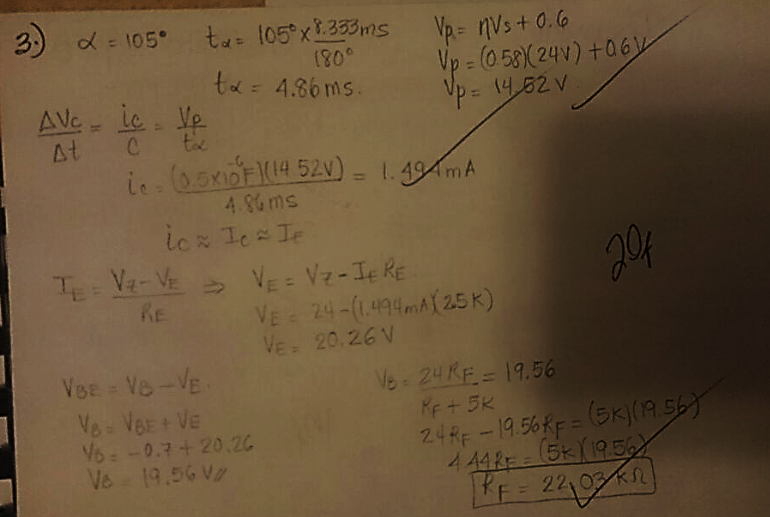 3.) α = 105° tα = 105° x 8.333ms / 180° Vp = ηVs + 0.6
tα = 4.86ms. Vp = (0.58)(24V) + 0.6V
Vp = 14.52V
ΔVc / Δt = ic / C = Vp / tα
ic = (0.5x10⁻⁶F)(14.52V) / 4.86ms = 1.494mA
ic ≈ Ic ≈ IE
IE = VZ - VE / RE ⇒ VE = VZ - IE RE
VE = 24 - (1.494mA)(2.5K)
VE = 20.26V
VBE = VB - VE.
VB = VBE + VE
VB = -0.7 + 20.26
VB = 19.56V//
VB = 24RF / RF + 5K = 19.56
24RF - 19.56RF = (5K)(19.56)
4.44RF = (5K)(19.56)
RF = 22.03 KΩ